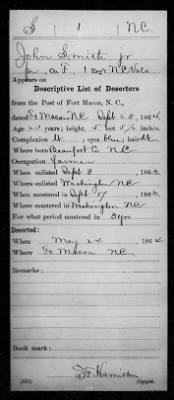 S 1 NC
John Smith jr
Co. F, 1 Reg't NC Vols
Appears on
Descriptive List of Deserters
from the Post of Fort Macon, N. C.,
dated Ft Macon NC Sept 28, 1864
years; height, 5 feet inches
Complexion lt; eyes blue; hair dk
Where born Beaufort Co NC
Occupation Farmer
When enlisted Sept 8, 1863
Where enlisted Washington NC
When mustered in Sept 17, 1863
Where mustered in Washington NC
For what period mustered in 3 yrs
Deserted:
When May 24, 1864
Where Ft Macon NC
Remarks:
Book mark:
Hamilton
Copyist.